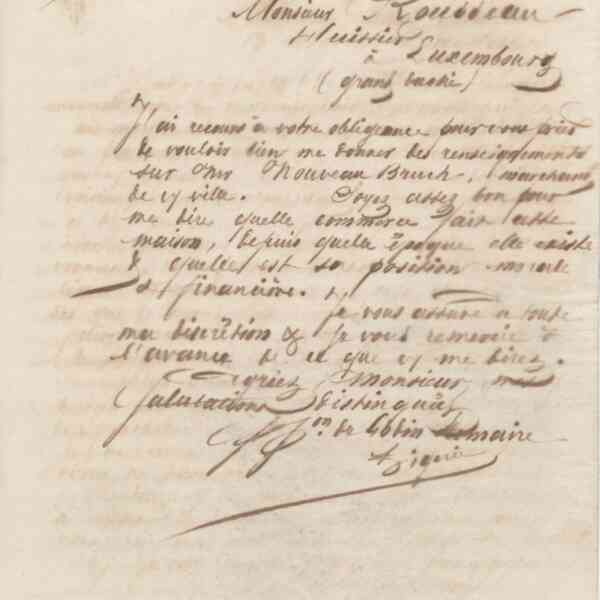 Monsieur Rousseau
Huissier
à Luxembourg
(grand duché)
J'ai recours à votre obligeance pour vous prier
de vouloir bien me donner des renseignements
sur Mr Nouveau Bruck, marchand
de vy ville. Soyez assez bon pour
me dire quelle commerce fait cette
maison, depuis quelle époque elle existe
& quelle est sa position morale
et financière.
Je vous assure a toute
ma discrétion & je vous remercie à
l'avance de ce que vy me direz.
Agréez Monsieur mes
Salutations distinguées
de Godin Lemaire